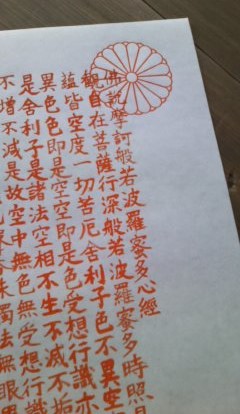 佛説摩訶般若波羅蜜多心經
觀自在菩薩行深般若波羅蜜多時照見
蘊皆空度一切苦厄舍利子色不異空
異色色即是空空即是色受想行識亦
是舍利子是諸法空相不生不滅不垢
不増不減是故空中無色無受想行識
味觸法無眼界